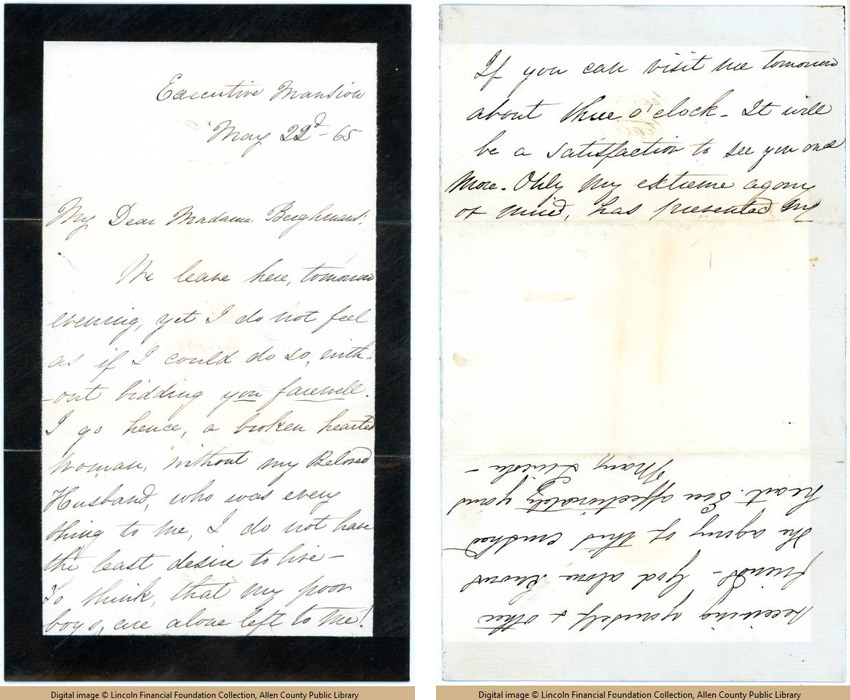 Executive Mansion
May 22d - 65
My Dear Madame Berghmans:
We leave here, tomorrow
evening, yet I do not feel
as if I could do so, with-
-out bidding you farewell.
I go hence, a broken hearted
woman, without my Beloved
Husband, who was every
thing to me, I do not have
the least desire to live -
To think, that my poor
boys, are alone left to me!
If you can visit me tomorrow
about three o'clock - It will
be a satisfaction to see you once
more. Only my extreme agony
of mind, has prevented my
receiving yourself & other
friends - God alone knows
the agony of this crushed
heart. Ever affectionately yours
Mary Lincoln -
Digital image © Lincoln Financial Foundation Collection, Allen County Public Library
Digital image © Lincoln Financial Foundation Collection, Allen County Public Library